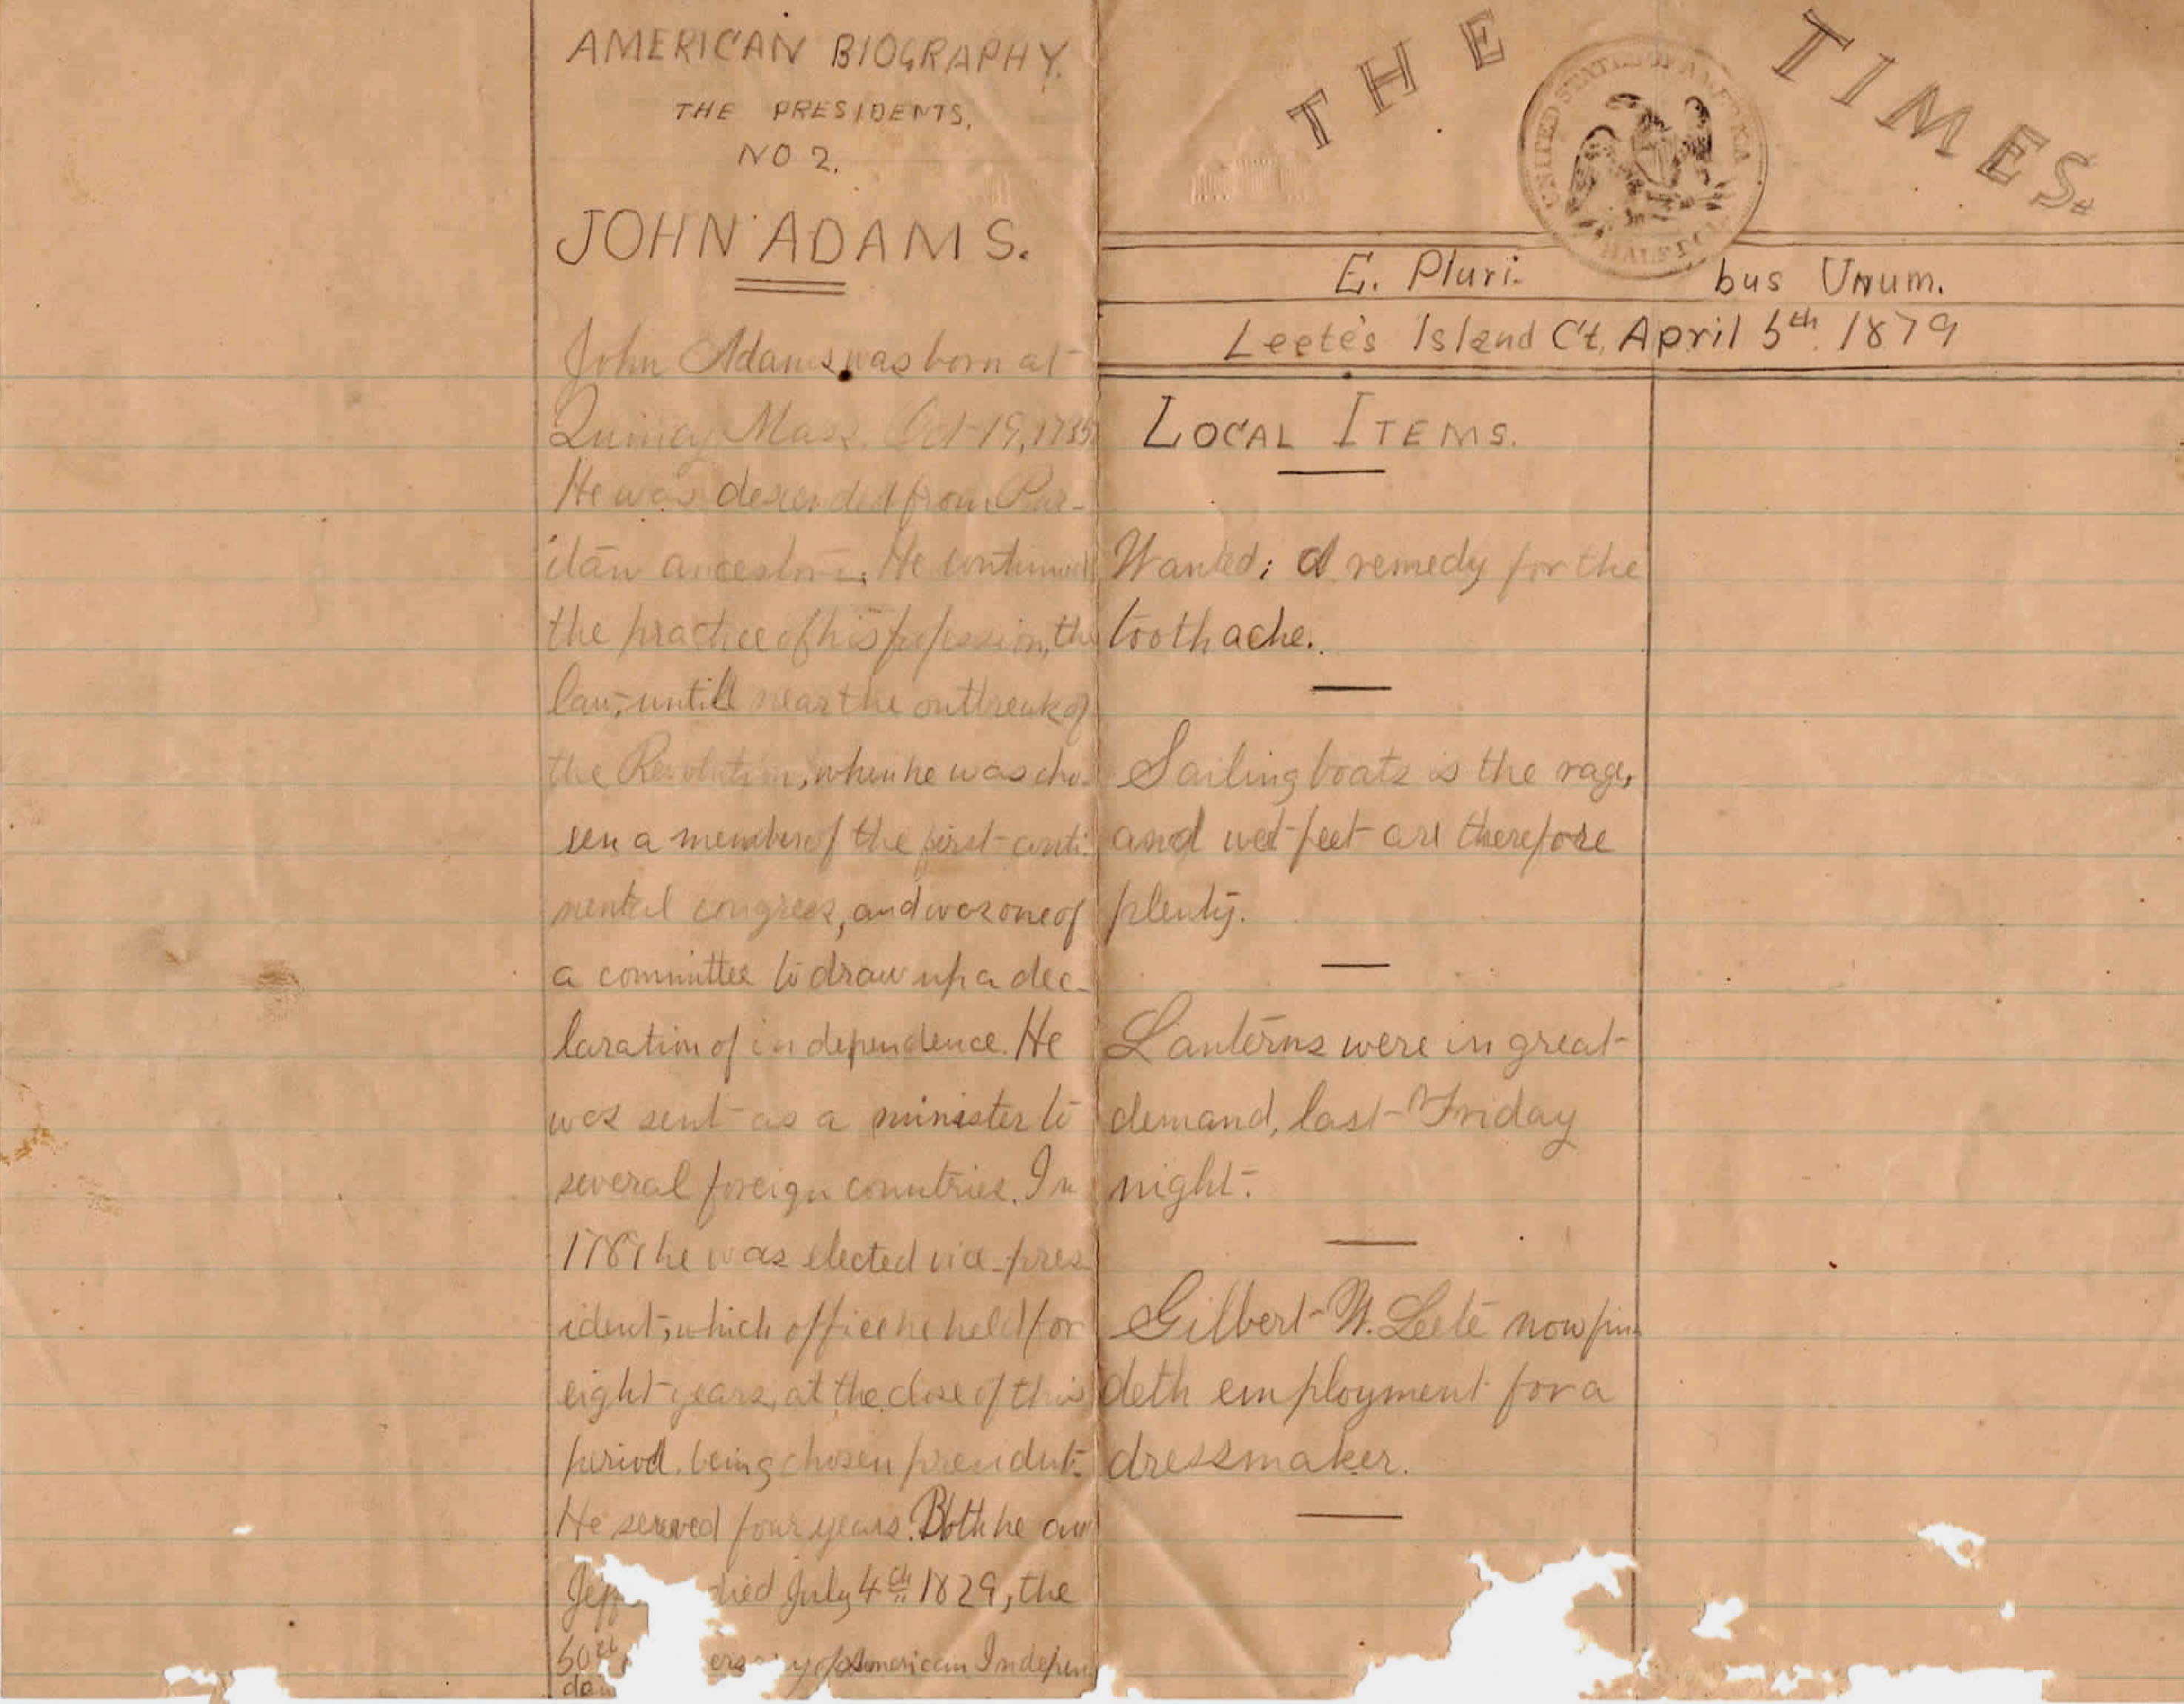 AMERICAN BIOGRAPHY.
THE PRESIDENTS.
NO 2.
JOHN ADAMS.
John Adams was born at
Quincy Mass. Oct 19, 1735
He was descended from Pur-
itan ancestors. He continued
the practice of his profession, the
law, untill near the outbreak of
the Revolution, when he was cho-
sen a member of the first conti-
nental congress, and was one of
a committee to draw up a dec-
laration of independence. He
was sent as a minister to
several foreign countries. In
he was elected vice-pres
ident, which office he held for
eight years, at the close of this
period. being chosen president.
He served four years. Both he an
Jeff died July 4th 1829, the
50th ersary of American Indepen
den
THE TIMES.
UNITED STATES OF AMERICA
HALF DOL
E. Pluri- bus Unum.
Leete's Island Ct. April 5th. 1879
LOCAL ITEMS.
Wanted; A remedy for the
toothache.
Sailing boats is the rage,
and wet feet are therefore
plenty.
Lanterns were in great
demand, last Friday
night.
Gilbert W. Leete now fin-
deth employment for a
dressmaker.